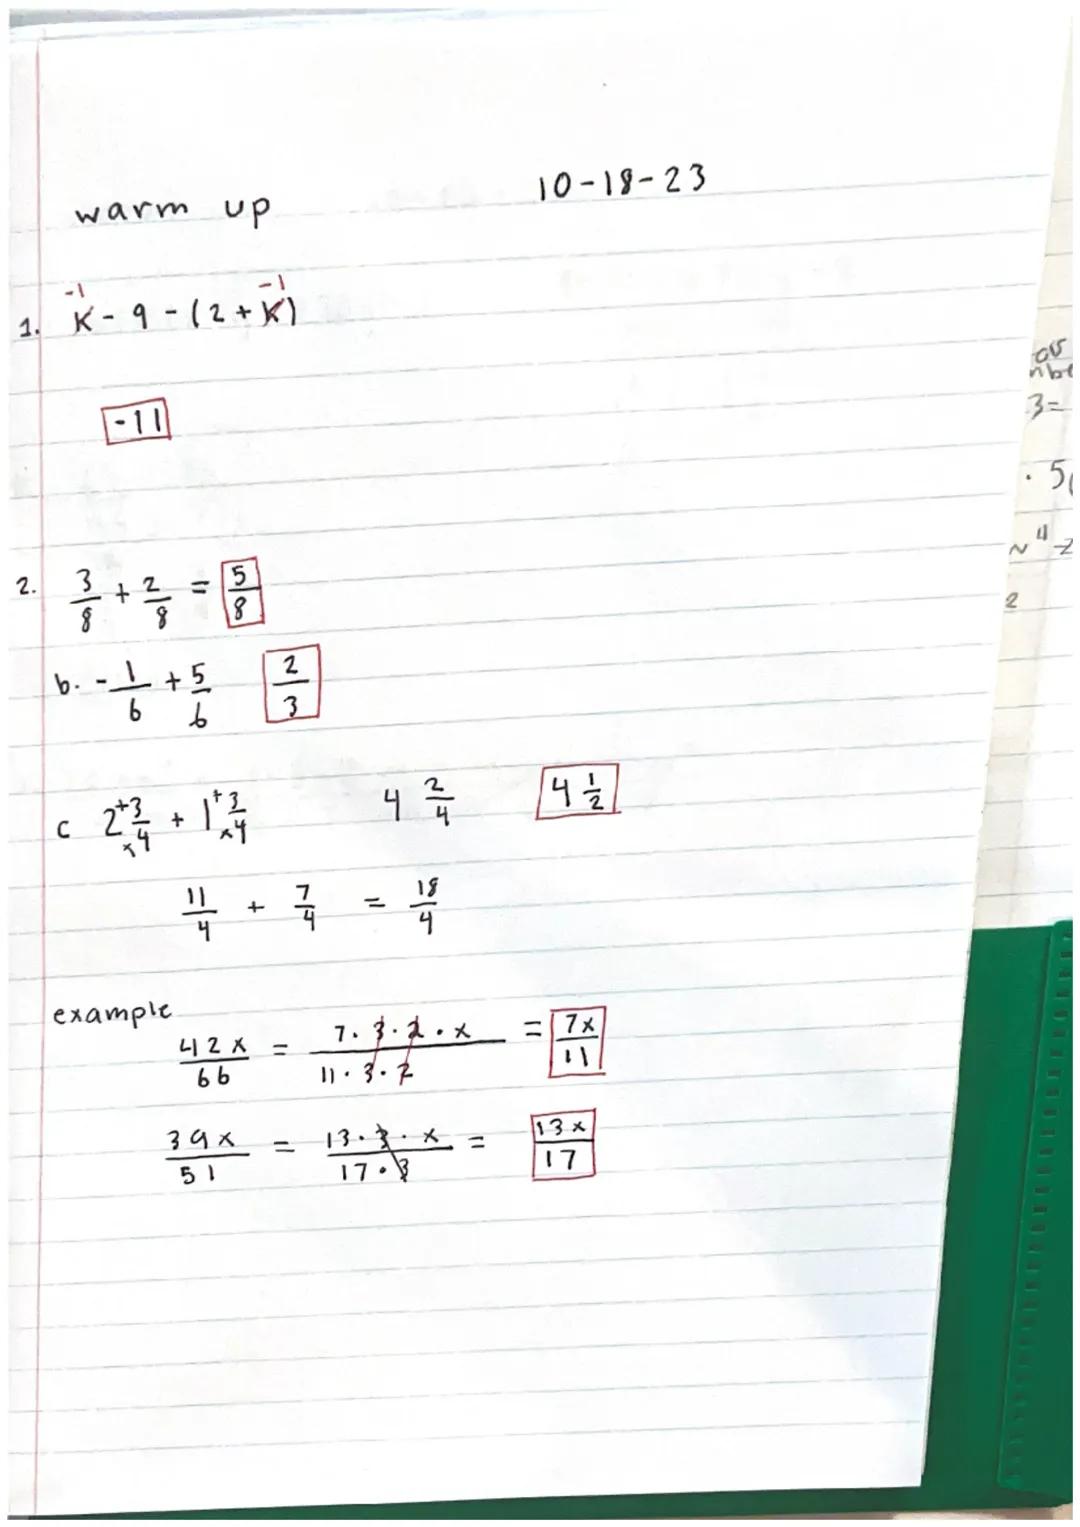 warm up 10-18-23
-1 -1
1. K - 9 - (2 + K)
-11
2. 3/8 + 2/8 = 5/8
b. - 1/6 + 5/6 2/3
c 2 +3/×4 + 1 +3/×4 4 2/4 4 1/2
11/4 + 7/4 = 18/4
example
42x/66 = 7·3·2·x/11·3·2 = 7x/11
39x/51 = 13·3·x/17·3 = 13x/17
3=
. 5
2